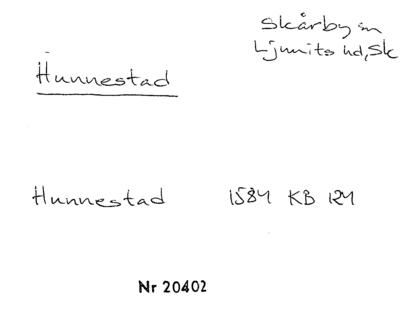 Skårby sn
Ljunits hd, Sk
Hunnestad
Hunnestad 1584 KB 124
Nr 20402